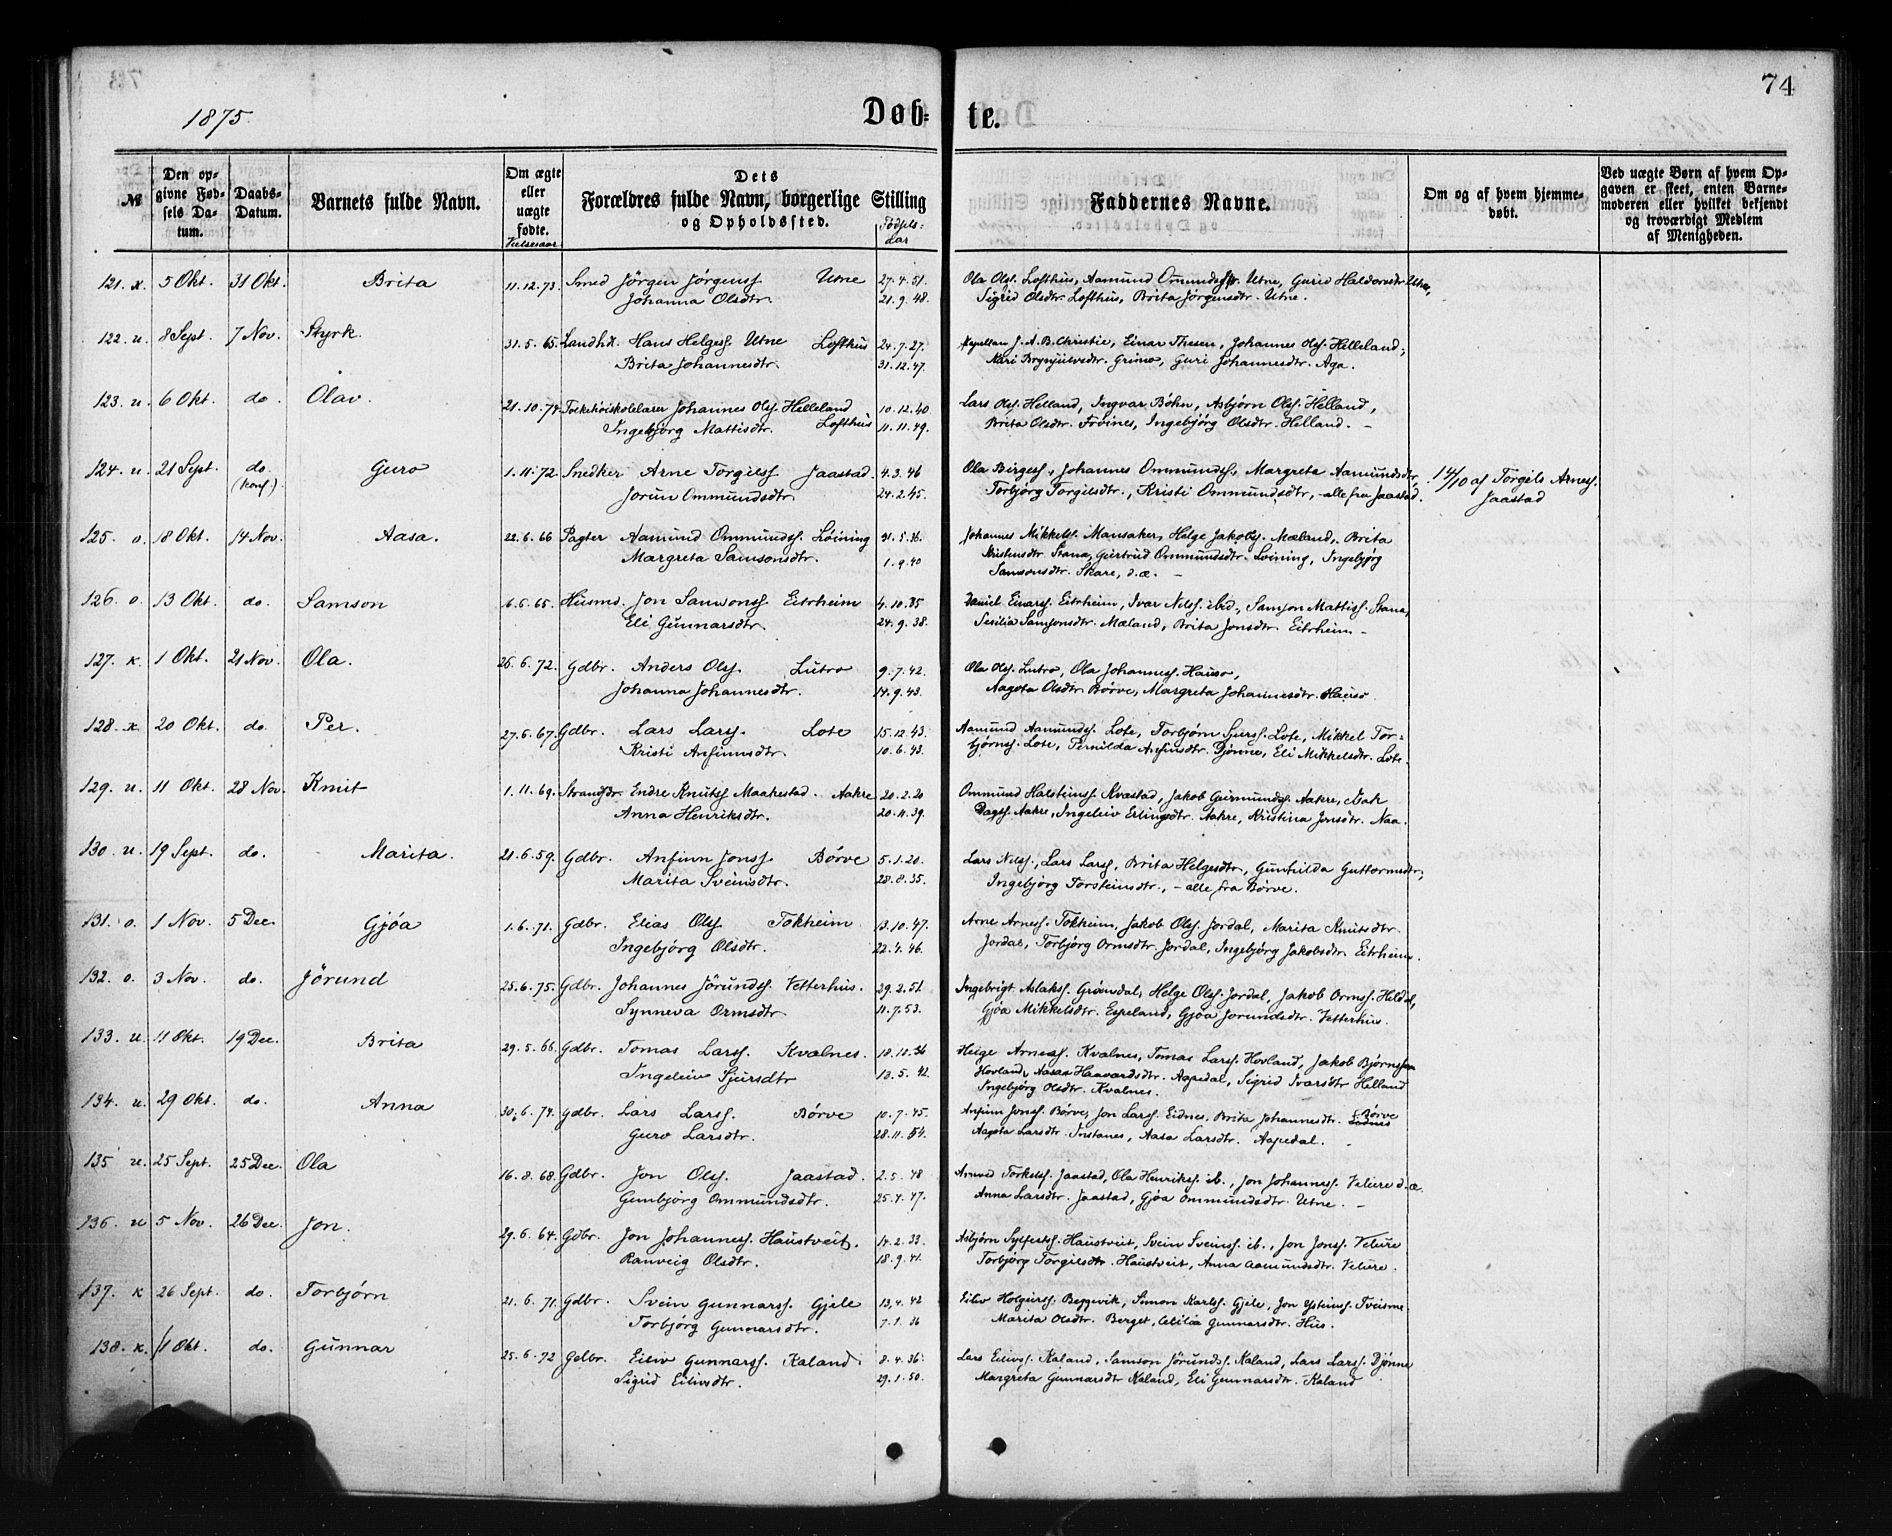 74
1875.
Døb- te.
№
Den opgivne Fødsels Datum.
Daabs-Datum.
Barnets fulde Navn.
Om ægte eller uægte fødte.
Vielsesaar
Dets Forældres fulde Navn, borgerlige Stilling og Opholdssted.
Fødselsaar
Faddernes Navne.
Om og af hvem hjemmedøbt.
Ved uægte Børn af hvem Opgaven er skeet, enten Barnemoderen eller hvilket bekjendt og troværdigt Medlem af Menigheden.
121. k. 5 Okt. 31 Okt. Brita 11.12.73. Smed Jörgen Jörgenss. Utne 27.4.51. Ola Olss. Lofthus, Aamund Omundss. Utne, Gurid Haldorsdtr Utne,
Johanna Olsdtr. 21.9.48. Sigrid Olsdtr. Lofthus, Brita Jörgensdtr. Utne.
122. u. 8 Sept. 7 Nov. Styrk 31.5.65. Landhdl. Hans Helgess. Utne Lofthus 24.7.27. Kapellan J. A. B. Christie, Einar Thesen, Johannes Olss. Helleland,
Brita Johannesdtr. 31.12.47. Mari Brynjulvsdtr. Grimo, Guri Johannesdtr. Aga.
123. u. 6 Okt. do. Olav. 21.10.74. Folkehöiskolelærer Johannes Olss. Helleland 10.12.40 Lars Olss. Helland, Ingvar Böhn, Asbjörn Olss. Helland,
Ingebjörg Mattisdtr. Lofthus 11.11.49. Brita Olsdtr. Fröines, Ingebjörg Olsdtr. Helland. -
124. u. 21 Sept. do. (konf). Guro 1.11.72. Snedker Arne Torgilss. Jaastad. 4.3.46 Ola Birgess., Johannes Ommundss., Margreta Aamundsdtr, 14/10 af Torgils Arness.
Jorun Ommundsdtr 24.2.45. Torbjörg Torgilsdtr., Kristi Ommundsdtr, - alle fra Jaastad. Jaastad
125. o. 18 Okt. 14 Nov. Aasa. 22.6.66 Pagter Aamund Ommundss. Löining 31.5.36. Johannes Mikkelss. Mansaker, Helge Jakobs. Mæland, Brita
Margreta Samsonsdtr. 1.9.40 Kristensdtr. Stana, Gjertrud Ommundsdtr. Löining, Ingebjörg
Samsonsdtr. Skare, d.æ. -
126. o. 13 Okt. do. Samson 6.6.65. Husmd. Jon Samsons. Eitrheim 4.10.35 Daniel Einarss. Eitrheim, Ivar Nilss. ibid., Samson Mattiss. Stana,
Eli Gunnarsdtr. 24.9.38. Sesilia Samsonsdtr. Mæland, Brita Jonsdtr. Eitrheim -
127. k. 1 Okt. 21 Nov. Ola. 26.6.72. Gdbr. Anders Olss. Lutro 9.7.42. Ola Olss. Lutro, Ola Johanness. Hauso,
Johanna Johannesdtr. 14.9.43. Aagota Olsdtr Börve, Margreta Johannesdtr. Hauso
128. k. 20 Okt. do. Per. 27.6.67. Gdbr. Lars Larss. Lote 15.12.43. Aamund Aamundss. Lote, Torbjörn Sjurss. Lote, Mikkel Tor-
Kristi Anfinnsdtr. 10.6.43. björnss. Lote, Pernilda Anfinsdtr. Djönne, Eli Mikkelsdtr. Lote.
129. u. 11 Okt. 28 Nov. Knut 1.11.69. Strandsdr. Endre Knutss. Maakestad. Aakre 20.2.20 Ommund Halsteinss. Kvæstad, Jakob Geirmundss. Aakre, Isak
Anna Henriksdtr. 20.11.39. Dagss. Aakre, Ingeleiv Erlingsdtr. Aakre, Kristina Jonsdtr. Naa.
130. u. 19 Sept. do. Marita. 21.6.59. Gdbr. Anfinn Jonss. Börve 5.1.20. Lars Nilss., Lars Larss., Brita Helgesdtr., Gunhilda Guttormsdtr,
Marita Sveinsdtr. 28.8.35. Ingebjörg Torsteinsdtr., - alle fra Börve.
131. o. 1 Nov. 5 Dec. Gjöa 1.6.71. Gdbr. Elias Olss. Tokheim 13.10.47. Arne Arness. Tokheim, Jakob Olss. Jordal, Marita Knutsdtr.
Ingebjörg Olsdtr. 22.4.46. Jordal, Torbjörg Ormsdtr. Jordal, Ingebjörg Jakobsdtr. Eitrheim.
132. o. 3 Nov. do. Jörund 25.6.75. Gdbr. Johannes Jörundss. Vetterhus. 29.2.51 Ingebrigt Aslakss. Grönsdal, Helge Olss. Jordal, Jakob Ormss. Heldal,
Synneva Ormsdtr 11.7.53. Gjöa Mikkelsdtr. Espeland, Gjöa Jörundsdtr. Vetterhus.
133. u. 11 Okt. 19 Dec. Brita 29.5.66. Gdbr. Tomas Larss. Kvalnes. 18.10.36 Helge Arness. Kvalnes, Tomas Larss. Hovland, Jakob Björnss.
Ingeleiv Sjursdtr 13.5.42. Hovland, Aasa Haavardsdtr. Aapedal, Sigrid Ivarsdtr Helland
Ingebjörg Olsdtr. Kvalnes.
134. u. 29 Okt. do. Anna 30.6.74. Gdbr. Lars Larss. Börve 10.7.45. Anfinn Jonss. Börve, Jon Larss. Eidnes, Brita Johannesdtr. Börve
Guro Larsdtr. 28.11.54. Aagota Larsdtr. Instanes, Aasa Larsdtr. Aapedal.
135 u. 25 Sept. 25 Dec. Ola 16.8.68. Gdbr. Jon Olss. Jaastad. 2.5.48 Arnved Torkelss. Jaastad, Ola Henrikss. ib., Jon Johanness. Velure d.æ.
Gunbjörg Ommundsdtr. 25.4.47. Anna Larsdtr. Jaastad, Gjöa Ommundsdtr. Utne. -
136. u 5 Nov. 26 Dec. Jon. 29.6.64. Gdbr. Jon Johanness. Haustveit. 14.2.33. Asbjörn Sylfestss. Haustveit, Svein Sveinss. ib., Jon Jonss. Velure
Ranveig Olsdtr. 18.9.41. Torbjörg Torgilsdtr. Haustveit, Anna Aamundsdtr. Velure.
137. k 26 Sept. do. Torbjörn 21.6.71. Gdbr. Svein Gunnarss. Gjele 13.4.42 Eiliv Holgerss. Beggevik, Simon Karlss. Gjele, Jon Östeinss. Tveisme
Torbjörg Gunnarsdtr. 7.1.36 Marita Olsdtr. Berget, Cecilia Gunnarsdtr. Hus.
138. k. 1 Okt. do. Gunnar 25.6.72 Gdbr. Eiliv Gunnarss. Kaland. 8.4.36. Lars Eilivs. Kaland, Samson Jörundss. Kaland, Lars Larss. Djönne
Sigrid Eilivsdtr. 29.1.50. Margreta Gunnarsdtr Kaland, Eli Gunnarsdtr. Kaland